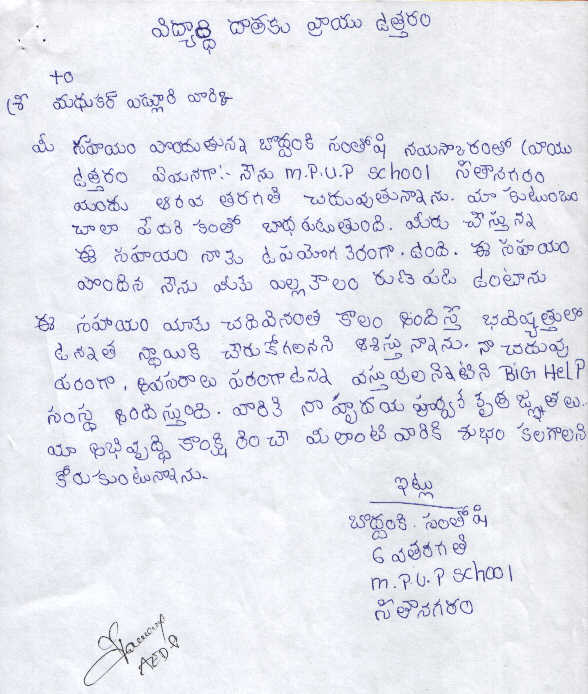 విద్యార్థి దాతకు వ్రాయు ఉత్తరం
to
శ్రీ మధుకర్ ఏడ్లూరి వారికి
మీ సహాయం పొందుతున్న బొద్దంకి సంతోషి నమస్కారంతో వ్రాయు
ఉత్తరం ఏమనగా:- నేను M.P.U.P School సీతానగరం
నందు ఆరవ తరగతి చదువుతున్నాను. మా కుటుంబం
చాలా పేదరికంతో బాధపడుతుంది. మీరు చేస్తున్న
ఈ సహాయం నాకు ఉపయోగకరంగా ఉంది. ఈ సహాయం
పొందిన నేను మీకు ఎల్లకాలం రుణపడి ఉంటాను
ఈ సహాయం మాకు చదివినంత కాలం అందిస్తే భవిష్యత్తులో
ఉన్నత స్థాయికి చేరుకోగలనని ఆశిస్తున్నాను. నా చదువు
పరంగా, అవసరాలు పరంగా ఉన్న వస్తువులన్నిటిని BIG HELP
సంస్థ అందిస్తుంది. వారికి నా హృదయ పూర్వక కృతజ్ఞతలు.
మా అభివృద్ధి కాంక్షించే మీలాంటి వారికి శుభం కలగాలని
కోరుకుంటున్నాను.
ఇట్లు
బొద్దంకి. సంతోషి
6 వతరగతి
M.P.U.P School
సీతానగరం